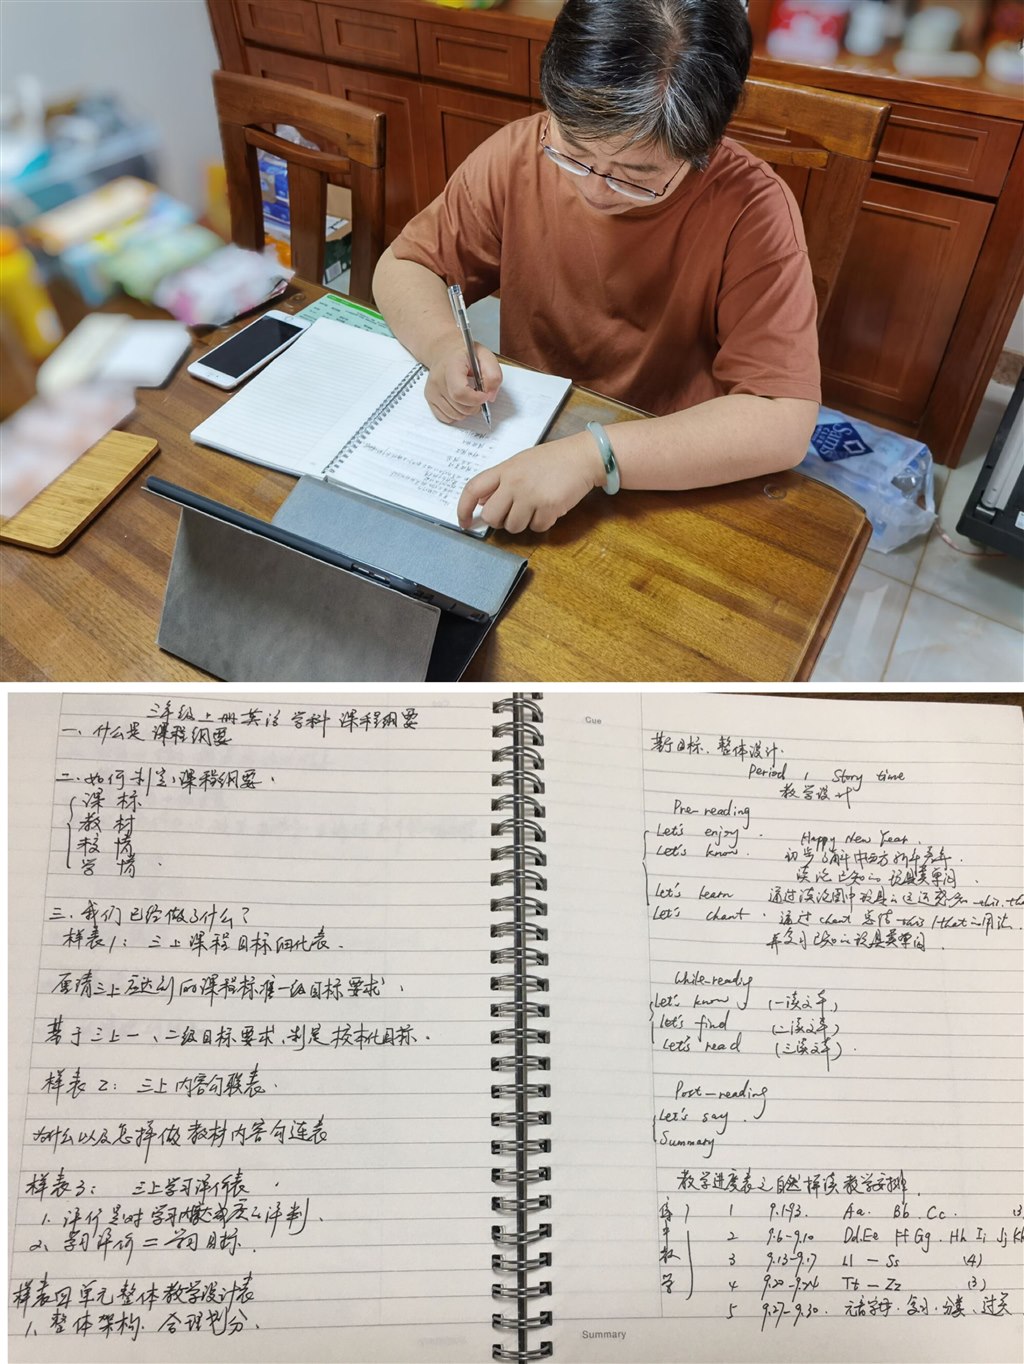 三年级上册英语学科课程纲要
一、什么是课程纲要
二、如何制定课程纲要.
课标
教材
校情
学情.
三、我们已经做了什么?
样表1: 三上课程目标细化表.
厘清三上应达到的课程标准一级目标要求.
基于三上一、二级目标要求,制定校本化目标.
样表2: 三上内容勾联表.
为什么以及怎样做教材内容勾连表
样表3: 三上学习评价表.
1. 评价是对学习内容达成度之评判.
2. 学习评价=学习目标.
样表四单元整体教学设计表
1、整体架构. 合理划分.
Cue
基于目标、整体设计.
Period 1 Story time
教学设计
Pre-reading
Let's enjoy. Happy New Year.
Let's know. 初步了解中西方新年
谈论已知的玩具类单词.
Let's learn 通过谈论图中玩具
Let's chant. 通过chant 掌握this/that之用法.
并复习已知的玩具类单词.
While-reading
Let's know (一读文章)
Let's find (二读文章)
Let's read (三读文章).
Post-reading
Let's say.
Summary
教学进度表之自然拼读教学安排.
1 9.1-9.3. Aa. Bb. Cc.
2 9.6-9.10 Dd.Ee Ff Gg. Hh Ii Jj
3 9.13-9.17 Ll — Ss (4)
教学 4 9.20-9.24 Tt — Zz (3)
5 9.27-9.30. 元音字母. 复习. 分类、过关
Summary